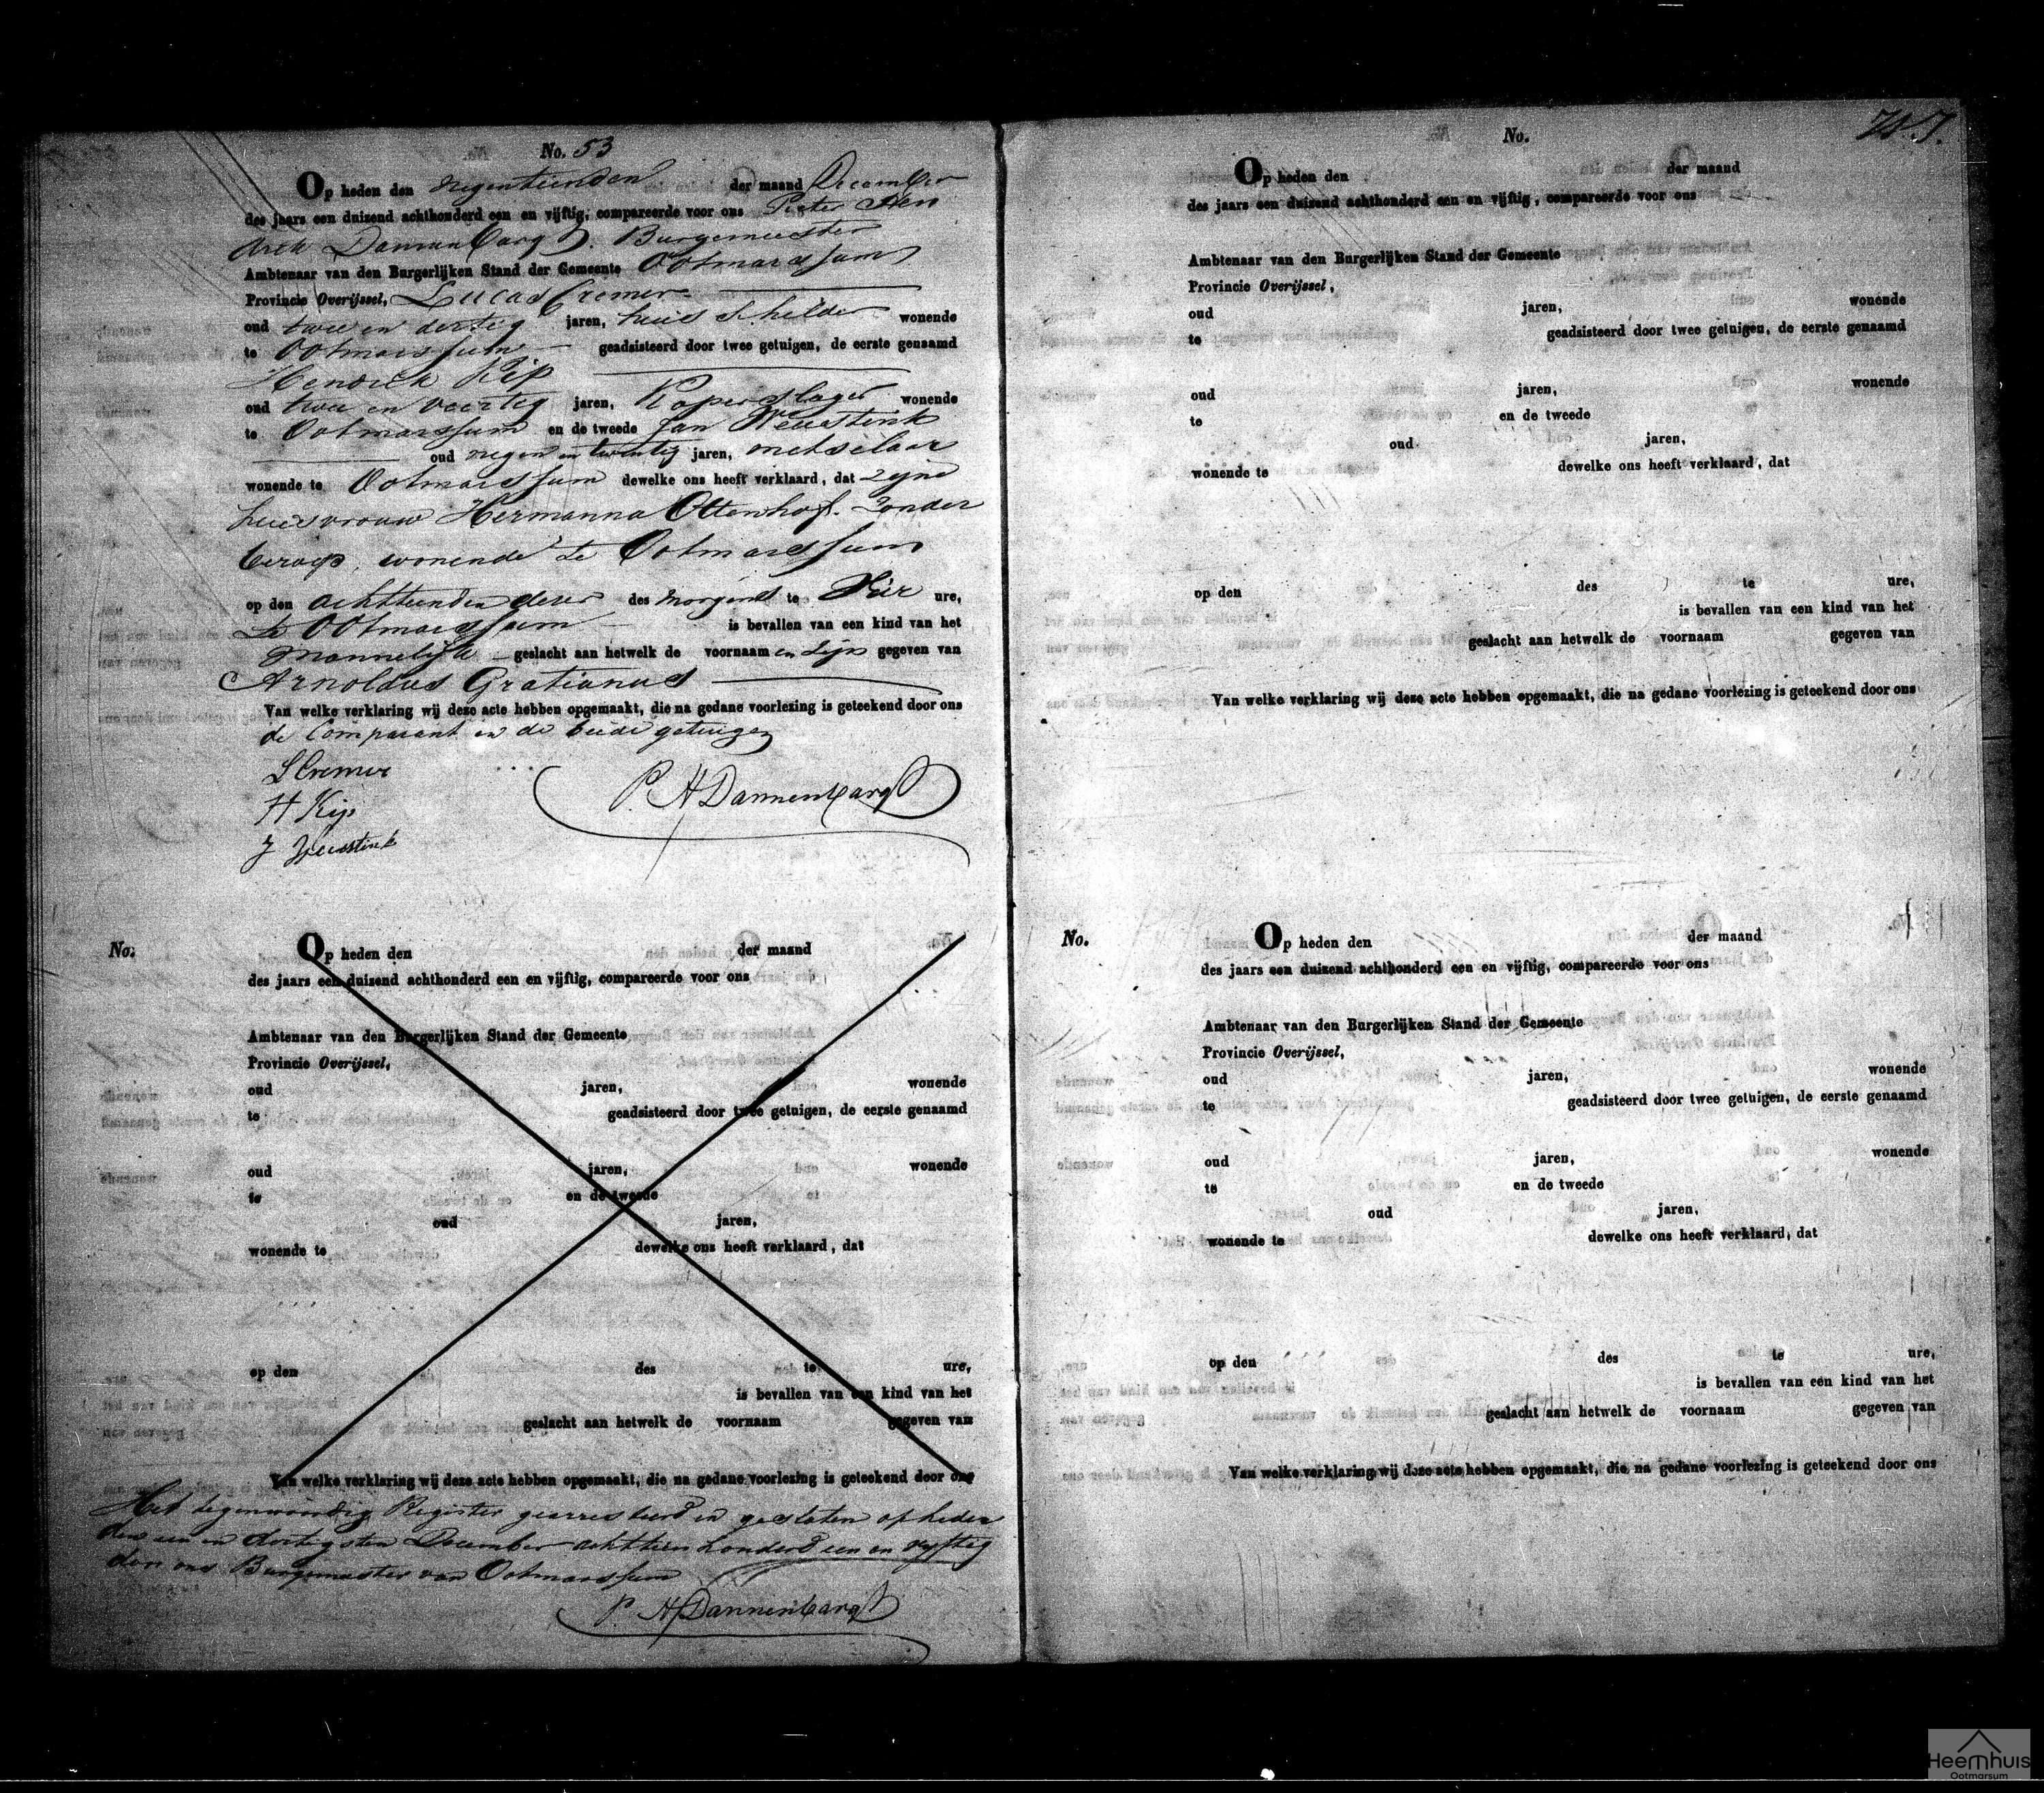 No. 53
Op heden den negentienden der maand December
des jaars een duizend achthonderd een en vijftig, compareerde voor ons Peter Hen
drik Dannenbarg Burgemeester
Ambtenaar van den Burgerlijken Stand der Gemeente Ootmarssum
Provincie Overijssel, Lucas Cremer
oud twee en dertig jaren, huis schilder wonende
te Ootmarssum geadsisteerd door twee getuigen, de eerste genaamd
Hendrik Kip
oud twee en veertig jaren, Koperslager wonende
te Ootmarssum en de tweede Jan Weustink
oud negen en twintig jaren, metselaar
wonende te Ootmarssum dewelke ons heeft verklaard, dat zijne
huisvrouw Hermanna Ottenhof. Zonder
beroep, wonende te Ootmarssum
op den achttienden dezer des morgens te Vier ure,
te Ootmarssum is bevallen van een kind van het
mannelijk geslacht aan hetwelk de voornaam en zijn gegeven van
Arnoldus Gratianus
Van welke verklaring wij deze acte hebben opgemaakt, die na gedane voorlezing is geteekend door ons
de Comparant en de beide getuigen
L Cremer
P. H Dannenbarg
H Kip
J Weustink
No. Op heden den der maand
des jaars een duizend achthonderd een en vijftig, compareerde voor ons
Ambtenaar van den Burgerlijken Stand der Gemeente
Provincie Overijssel,
oud jaren, wonende
te geadsisteerd door twee getuigen, de eerste genaamd
oud jaren, wonende
te en de tweede
oud jaren,
wonende te dewelke ons heeft verklaard, dat
op den des te ure,
is bevallen van een kind van het
geslacht aan hetwelk de voornaam gegeven van
Van welke verklaring wij deze acte hebben opgemaakt, die na gedane voorlezing is geteekend door ons
Het tegenwoordig Register gearresteerd en gesloten op heden
den een en dertigsten December achttien honderd een en vyftig
door ons Burgemeester van Ootmarssum
P. H Dannenbarg
No.
Op heden den der maand
des jaars een duizend achthonderd een en vijftig, compareerde voor ons
Ambtenaar van den Burgerlijken Stand der Gemeente
Provincie Overijssel,
oud jaren, wonende
te geadsisteerd door twee getuigen, de eerste genaamd
oud jaren, wonende
te en de tweede
oud jaren,
wonende te dewelke ons heeft verklaard, dat
op den des te ure,
is bevallen van een kind van het
geslacht aan hetwelk de voornaam gegeven van
Van welke verklaring wij deze acte hebben opgemaakt, die na gedane voorlezing is geteekend door ons
No. Op heden den der maand
des jaars een duizend achthonderd een en vijftig, compareerde voor ons
Ambtenaar van den Burgerlijken Stand der Gemeente
Provincie Overijssel,
oud jaren, wonende
te geadsisteerd door twee getuigen, de eerste genaamd
oud jaren, wonende
te en de tweede
oud jaren,
wonende te dewelke ons heeft verklaard, dat
op den des te ure,
is bevallen van een kind van het
geslacht aan hetwelk de voornaam gegeven van
Van welke verklaring wij deze acte hebben opgemaakt, die na gedane voorlezing is geteekend door ons
Heemhuis
Ootmarsum